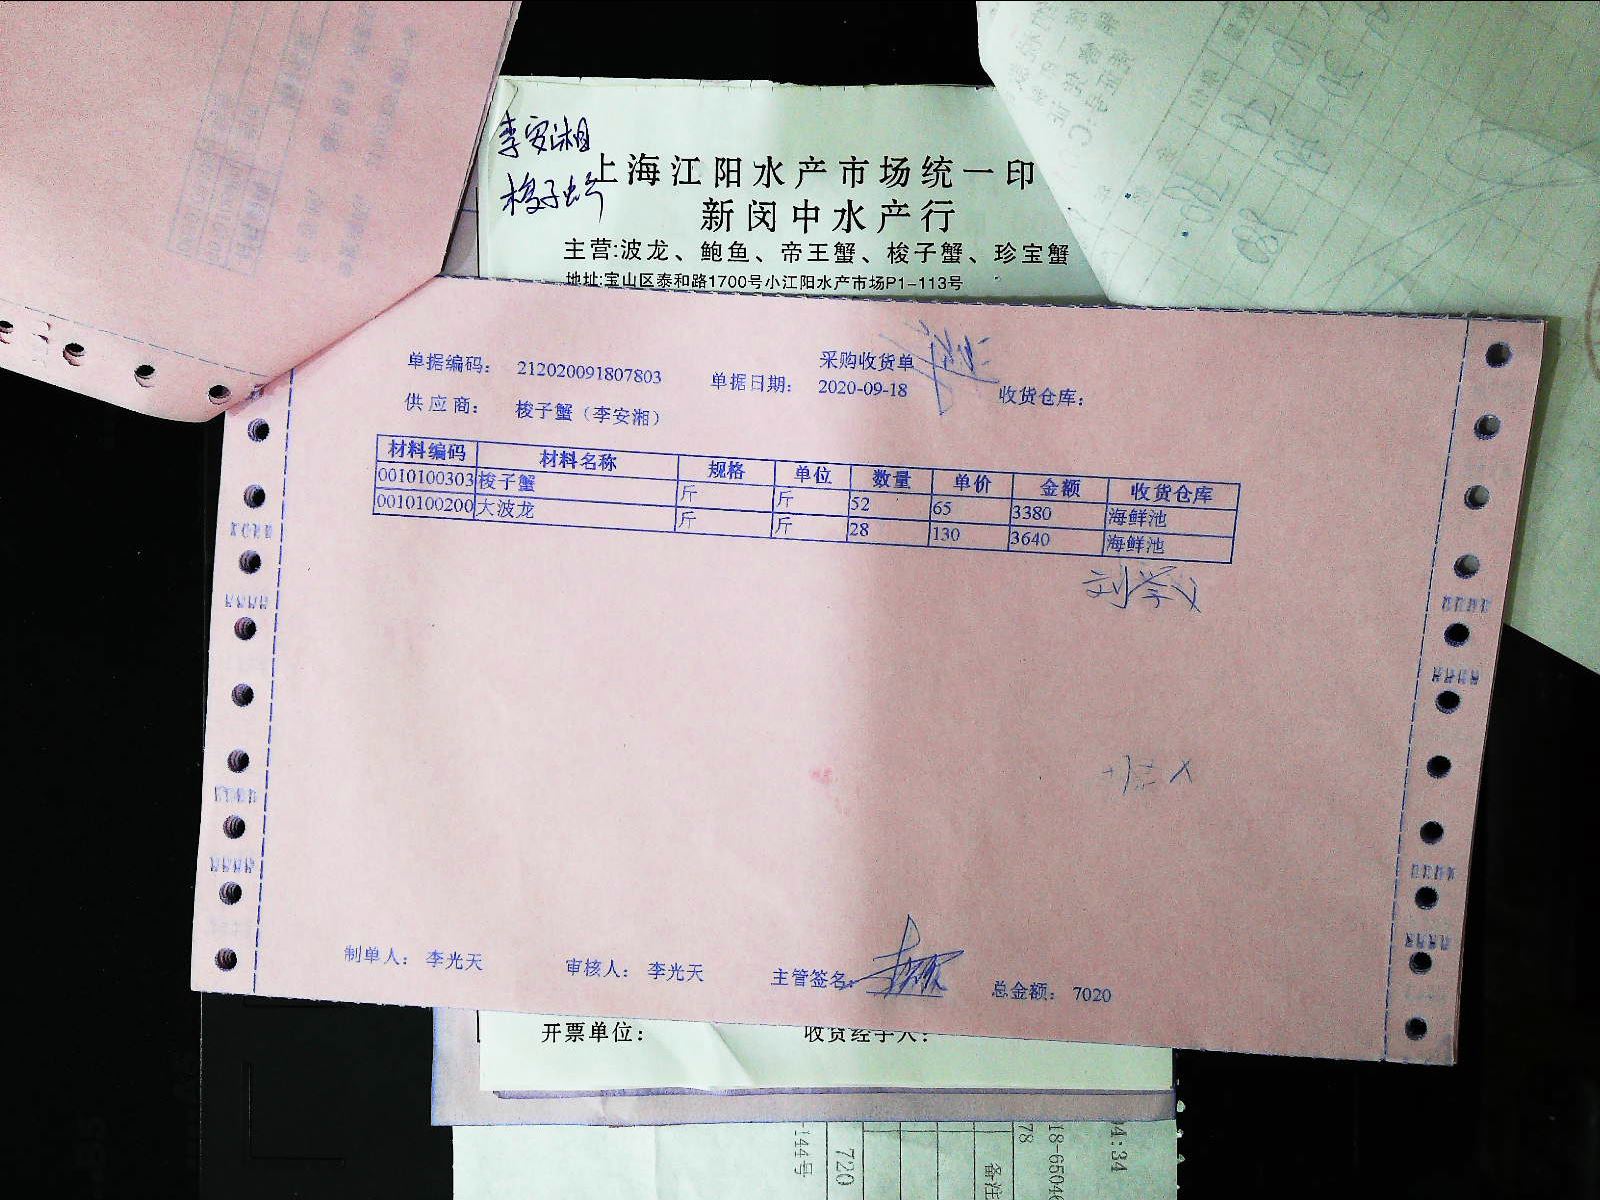 李安湘
梭子蟹
上海江阳水产市场统一印
新闵中水产行
主营:波龙、鲍鱼、帝王蟹、梭子蟹、珍宝蟹
地址:宝山区泰和路1700号小江阳水产市场P1-113号
采购收货单
单据编码: 212020091807803 单据日期: 2020-09-18 收货仓库:
供应商: 梭子蟹(李安湘)
材料编码 材料名称 规格 单位 数量 单价 金额 收货仓库
0010100303 梭子蟹 斤 斤 52 65 3380 海鲜池
0010100200 大波龙 斤 斤 28 130 3640 海鲜池
制单人: 李光天 审核人: 李光天 主管签名: 总金额: 7020
开票单位: 收货经手人:
-144号
720
备注
78
18-6504
04:34